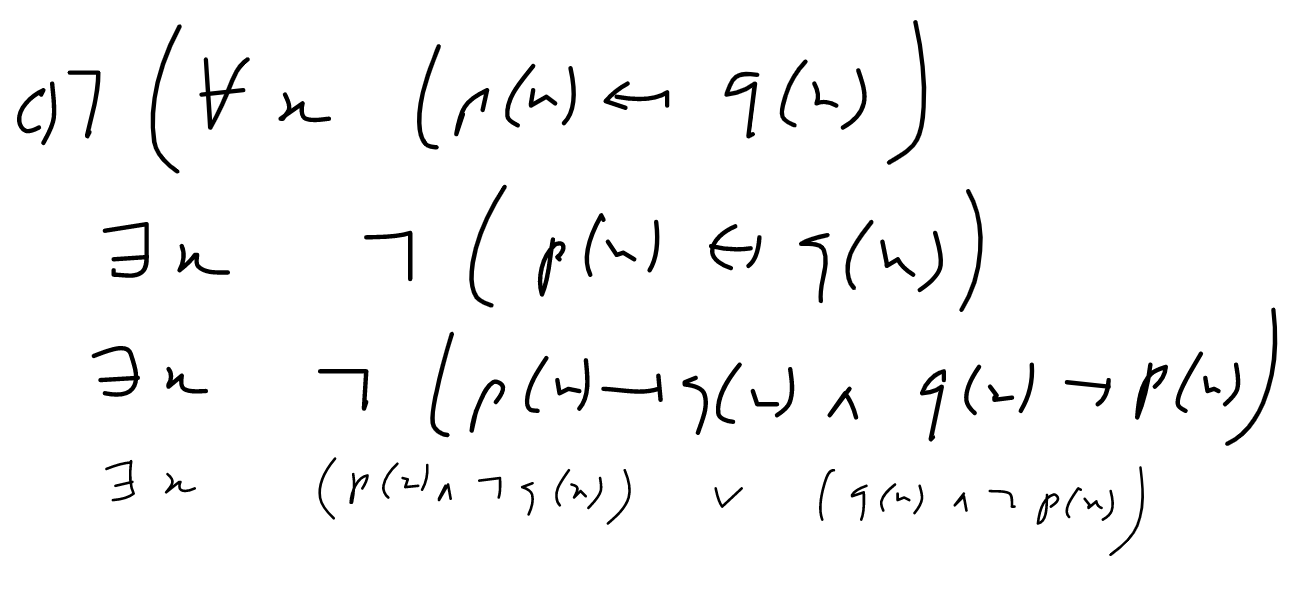 c) ¬ (∀ x (p(x) ↔ q(x))
∃ x ¬ (p(x) ↔ q(x))
∃ x ¬ (p(x) → q(x) ∧ q(x) → p(x))
∃ x (p(x) ∧ ¬ q(x)) ∨ (q(x) ∧ ¬ p(x))